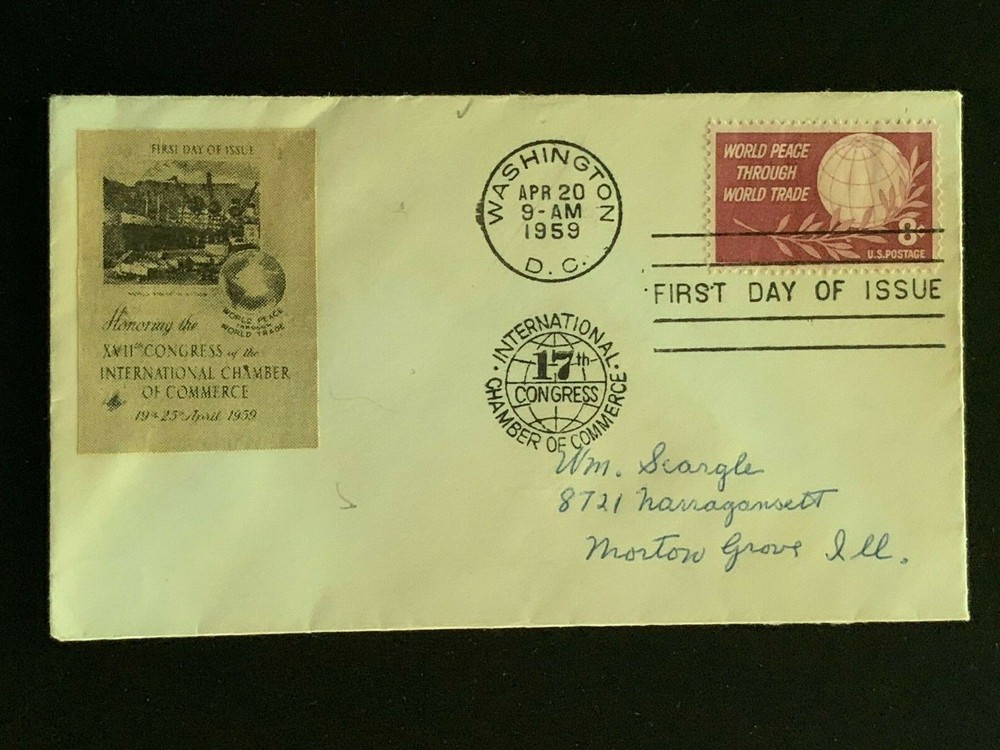 FIRST DAY OF ISSUE
WORLD PEACE
THROUGH
WORLD TRADE
Honoring the
XVIIth CONGRESS of the
INTERNATIONAL CHAMBER
OF COMMERCE
19th-25th April 1959
WASHINGTON
APR 20
9-AM
1959
D.C.
WORLD PEACE
THROUGH
WORLD TRADE
8¢
U.S.POSTAGE
FIRST DAY OF ISSUE
INTERNATIONAL
17th
CONGRESS
CHAMBER OF COMMERCE
Wm. Scargle
8721 Narragansett
Morton Grove Ill.